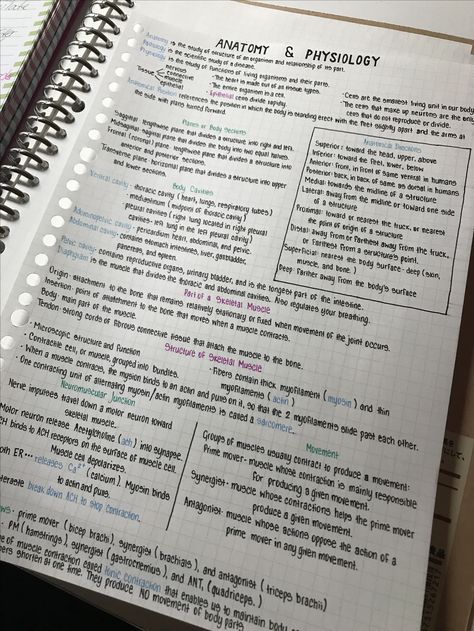 ANATOMY & PHYSIOLOGY
Anatomy is the study of structure of an organism and relationship of its part.
Pathology is the scientific study of a disease.
Physiology is the study of functions of living organisms and their parts.
Tissue
nervous
connective
muscle
epithelial
• The heart is made out of as tissue types.
• The entire organism is a cell.
• Epithelial cells divide rapidly.
• Cells are the smallest living unit in our body
• The cells that make up neurons are the only
cells that do not reproduce or divide.
Anatomical Position references the position in which the body is standing erect with the feet slightly apart and the arms at
the side with palms turned forward.
Planes or Body Sections
Sagittal: lengthwise plane that divides a structure into right and left.
Midsagittal: sagittal plane that divides the body into two equal halves.
Frontal (coronal) plane: lengthwise plane that divides a structure into
anterior and posterior sections.
Transverse plane: horizontal plane that divides a structure into upper
and lower sections.
Anatomical Directions
Superior: toward the head, upper, above
Inferior: toward the feet, lower, below
Anterior: front, in front of same ventral in humans
Posterior: back, in back of same as dorsal in humans
Medial: towards the midline of a structure
Lateral: away from the midline or toward one side
of a structure
Proximal: toward or nearest the trunk, or nearest
the point of origin of a structure
Distal: away from or farthest away from the trunk,
or farthest from a structure's point.
Superficial: nearest the body surface - deep (skin,
muscle, and bone.)
Deep: farther away from the body's surface
Body Cavities
Ventral cavity - thoracic cavity (heart, lungs, respiratory tubes)
- mediastinum (midpoint of thoracic cavity)
pleural cavities (right lung located in right pleural
cavities - left lung in the left pleural cavity)
Abdominopelvic cavity - pericardium: heart, abdominal, and pelvic.
Abdominal cavity: contains stomach, intestines, liver, gallbladder,
pancreas, and spleen.
Pelvic cavity: contains reproductive organs, urinary bladder, and is the longest part of the intestine.
Diaphragm is the muscle that divides the thoracic and abdominal cavities. Also regulates your breathing.
Part of a Skeletal Muscle
Origin: attachment to the bone that remains relatively stationary or fixed when movement of the joint occurs.
Insertion: point of attachment to the bone that moves when a muscle contracts.
Body: main part of the muscle.
Tendon: strong cords of fibrous connective tissue that attach the muscle to the bone.
Structure of Skeletal Muscle
• Microscopic structure and function
• Contractile cell, or muscle, grouped into bundles.
• Fibers contain thick myofilament (myosin) and thin
myofilaments (actin)
• When a muscle contracts, the myosin binds to an actin and pulls on it, so that the 2 myofilaments slide past each other.
• One contracting unit of alternating myosin/actin myofilaments is called a sarcomere.
Neuromuscular Junction
Nerve impulses travel down a motor neuron toward
skeletal muscle.
Motor neuron release Acetylcholine (ach) into synapse.
ACH binds to ACH receptors on the surface of muscle cell.
Muscle cell depolarizes.
ER... releases Ca²⁺ (calcium). Myosin binds
to actin and pulls.
break down ACH to stop contraction.
Movement
Groups of muscles usually contract to produce a movement:
Prime mover - muscle whose contraction is mainly responsible
for producing a given movement.
Synergist - muscle whose contractions helps the prime mover
produce a given movement.
Antagonist: muscle whose actions oppose the action of a
prime mover in any given movement.
- prime mover (bicep brachi), synergist (brachialis), and antagonist (triceps brachii)
- PM (hamstrings), synergist (gastrocnemius), and ANT. (quadriceps.)
of muscle contraction called tonic contraction that enables us to maintain body
shorten at one time. They produce NO movement of body parts